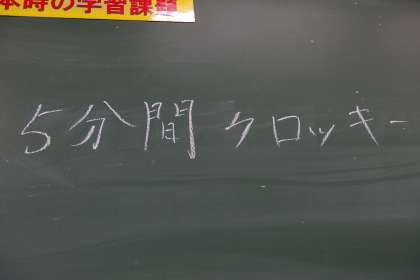 本時の学習課題
5分間クロッキー